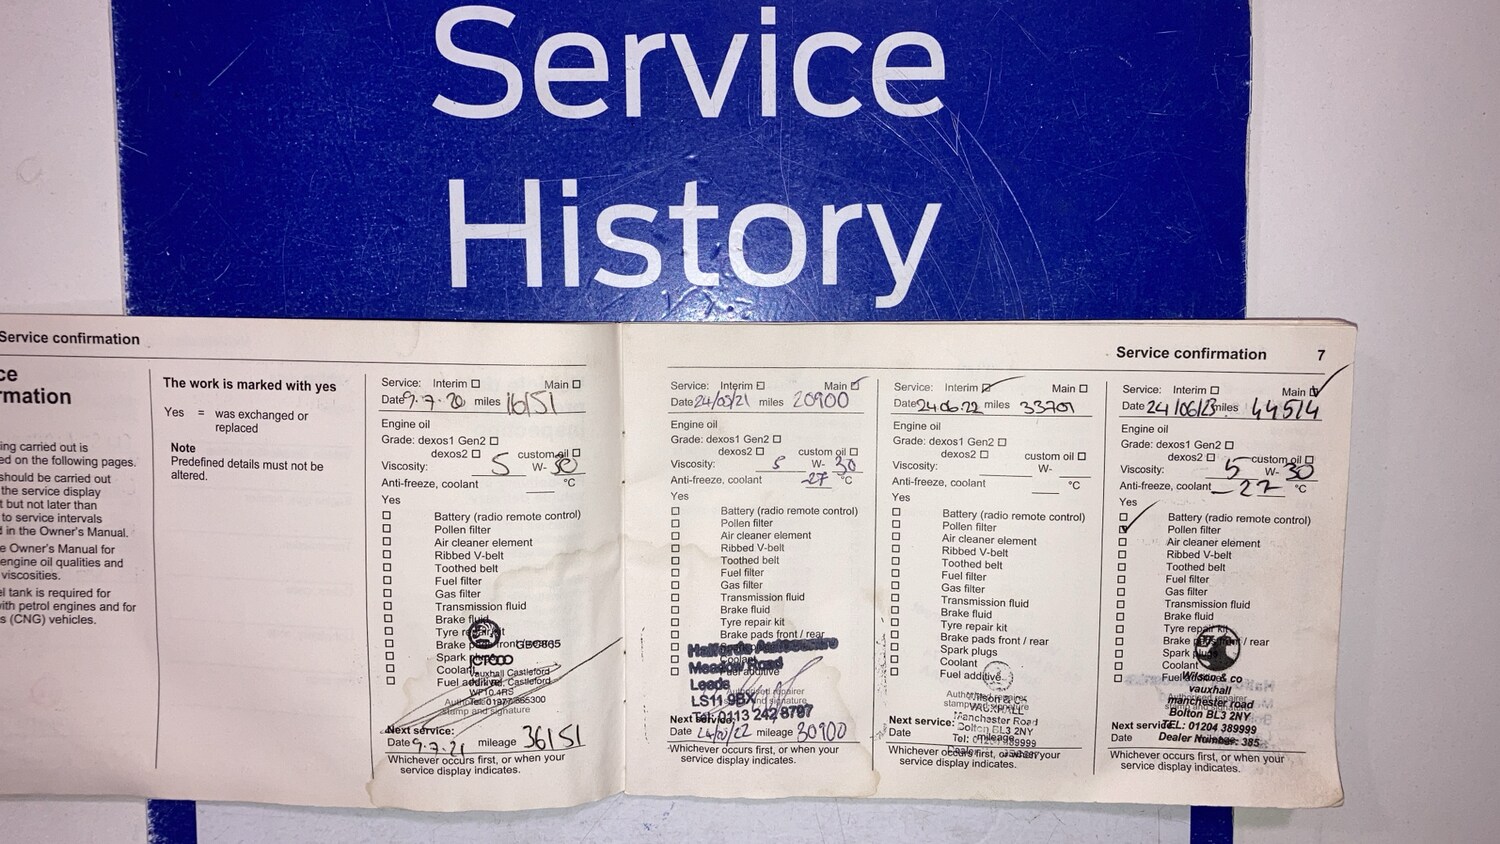 Service
History
Service confirmation
ce
rmation
ing carried out is
ed on the following pages.
should be carried out
the service display
t but not later than
to service intervals
d in the Owner's Manual.
e Owner's Manual for
engine oil qualities and
viscosities.
el tank is required for
with petrol engines and for
s (CNG) vehicles.
The work is marked with yes
Yes = was exchanged or
replaced
Note
Predefined details must not be
altered.
Service: Interim Main
Date 9.7.20 miles 16151
Engine oil
Grade: dexos1 Gen2
dexos2 custom oil
Viscosity: 5 W- 30
Anti-freeze, coolant °C
Yes
Battery (radio remote control)
Pollen filter
Air cleaner element
Ribbed V-belt
Toothed belt
Fuel filter
Gas filter
Transmission fluid
Brake fluid
Tyre repair kit
Brake pads front
Spark
Coolant
Fuel additive
Vauxhall Castleford
Castleford
WF10 4RS
Tel: 01977
stamp and signature
Next service:
Date 9.7.21 mileage 36151
Whichever occurs first, or when your
service display indicates.
Service: Interim Main
Date 24/03/21 miles 20900
Engine oil
Grade: dexos1 Gen2
dexos2 custom oil
Viscosity: 5 W- 30
Anti-freeze, coolant -27 °C
Yes
Battery (radio remote control)
Pollen filter
Air cleaner element
Ribbed V-belt
Toothed belt
Fuel filter
Gas filter
Transmission fluid
Brake fluid
Tyre repair kit
Brake pads front / rear
Halfords Autocentre
Meadow Road
Leeds
LS11 9BX
Tel: 0113 242 8787
Next
Date mileage 30900
Whichever occurs first, or when your
service display indicates.
Service confirmation 7
Service: Interim Main
Date 24.06.22 miles 33701
Engine oil
Grade: dexos1 Gen2
dexos2 custom oil
Viscosity: W-
Anti-freeze, coolant °C
Yes
Battery (radio remote control)
Pollen filter
Air cleaner element
Ribbed V-belt
Toothed belt
Fuel filter
Gas filter
Transmission fluid
Brake fluid
Tyre repair kit
Brake pads front / rear
Spark plugs
Coolant
Fuel additive
Wilson & Co
Manchester Road
Bolton BL3 2NY
Next service:
Date mileage
Whichever occurs first, or when your
service display indicates.
Service: Interim Main
Date 24/06/23 miles 44514
Engine oil
Grade: dexos1 Gen2
dexos2 custom oil
Viscosity: 5 W- 30
Anti-freeze, coolant -27 °C
Yes
Battery (radio remote control)
Pollen filter
Air cleaner element
Ribbed V-belt
Toothed belt
Fuel filter
Gas filter
Transmission fluid
Brake fluid
Tyre repair kit
Brake pads front / rear
Spark plugs
Coolant
Fuel additive
Wilson & co
vauxhall
manchester road
Bolton BL3 2NY
Next service: TEL: 01204 389999
Date Dealer Number: 385
Whichever occurs first, or when your
service display indicates.